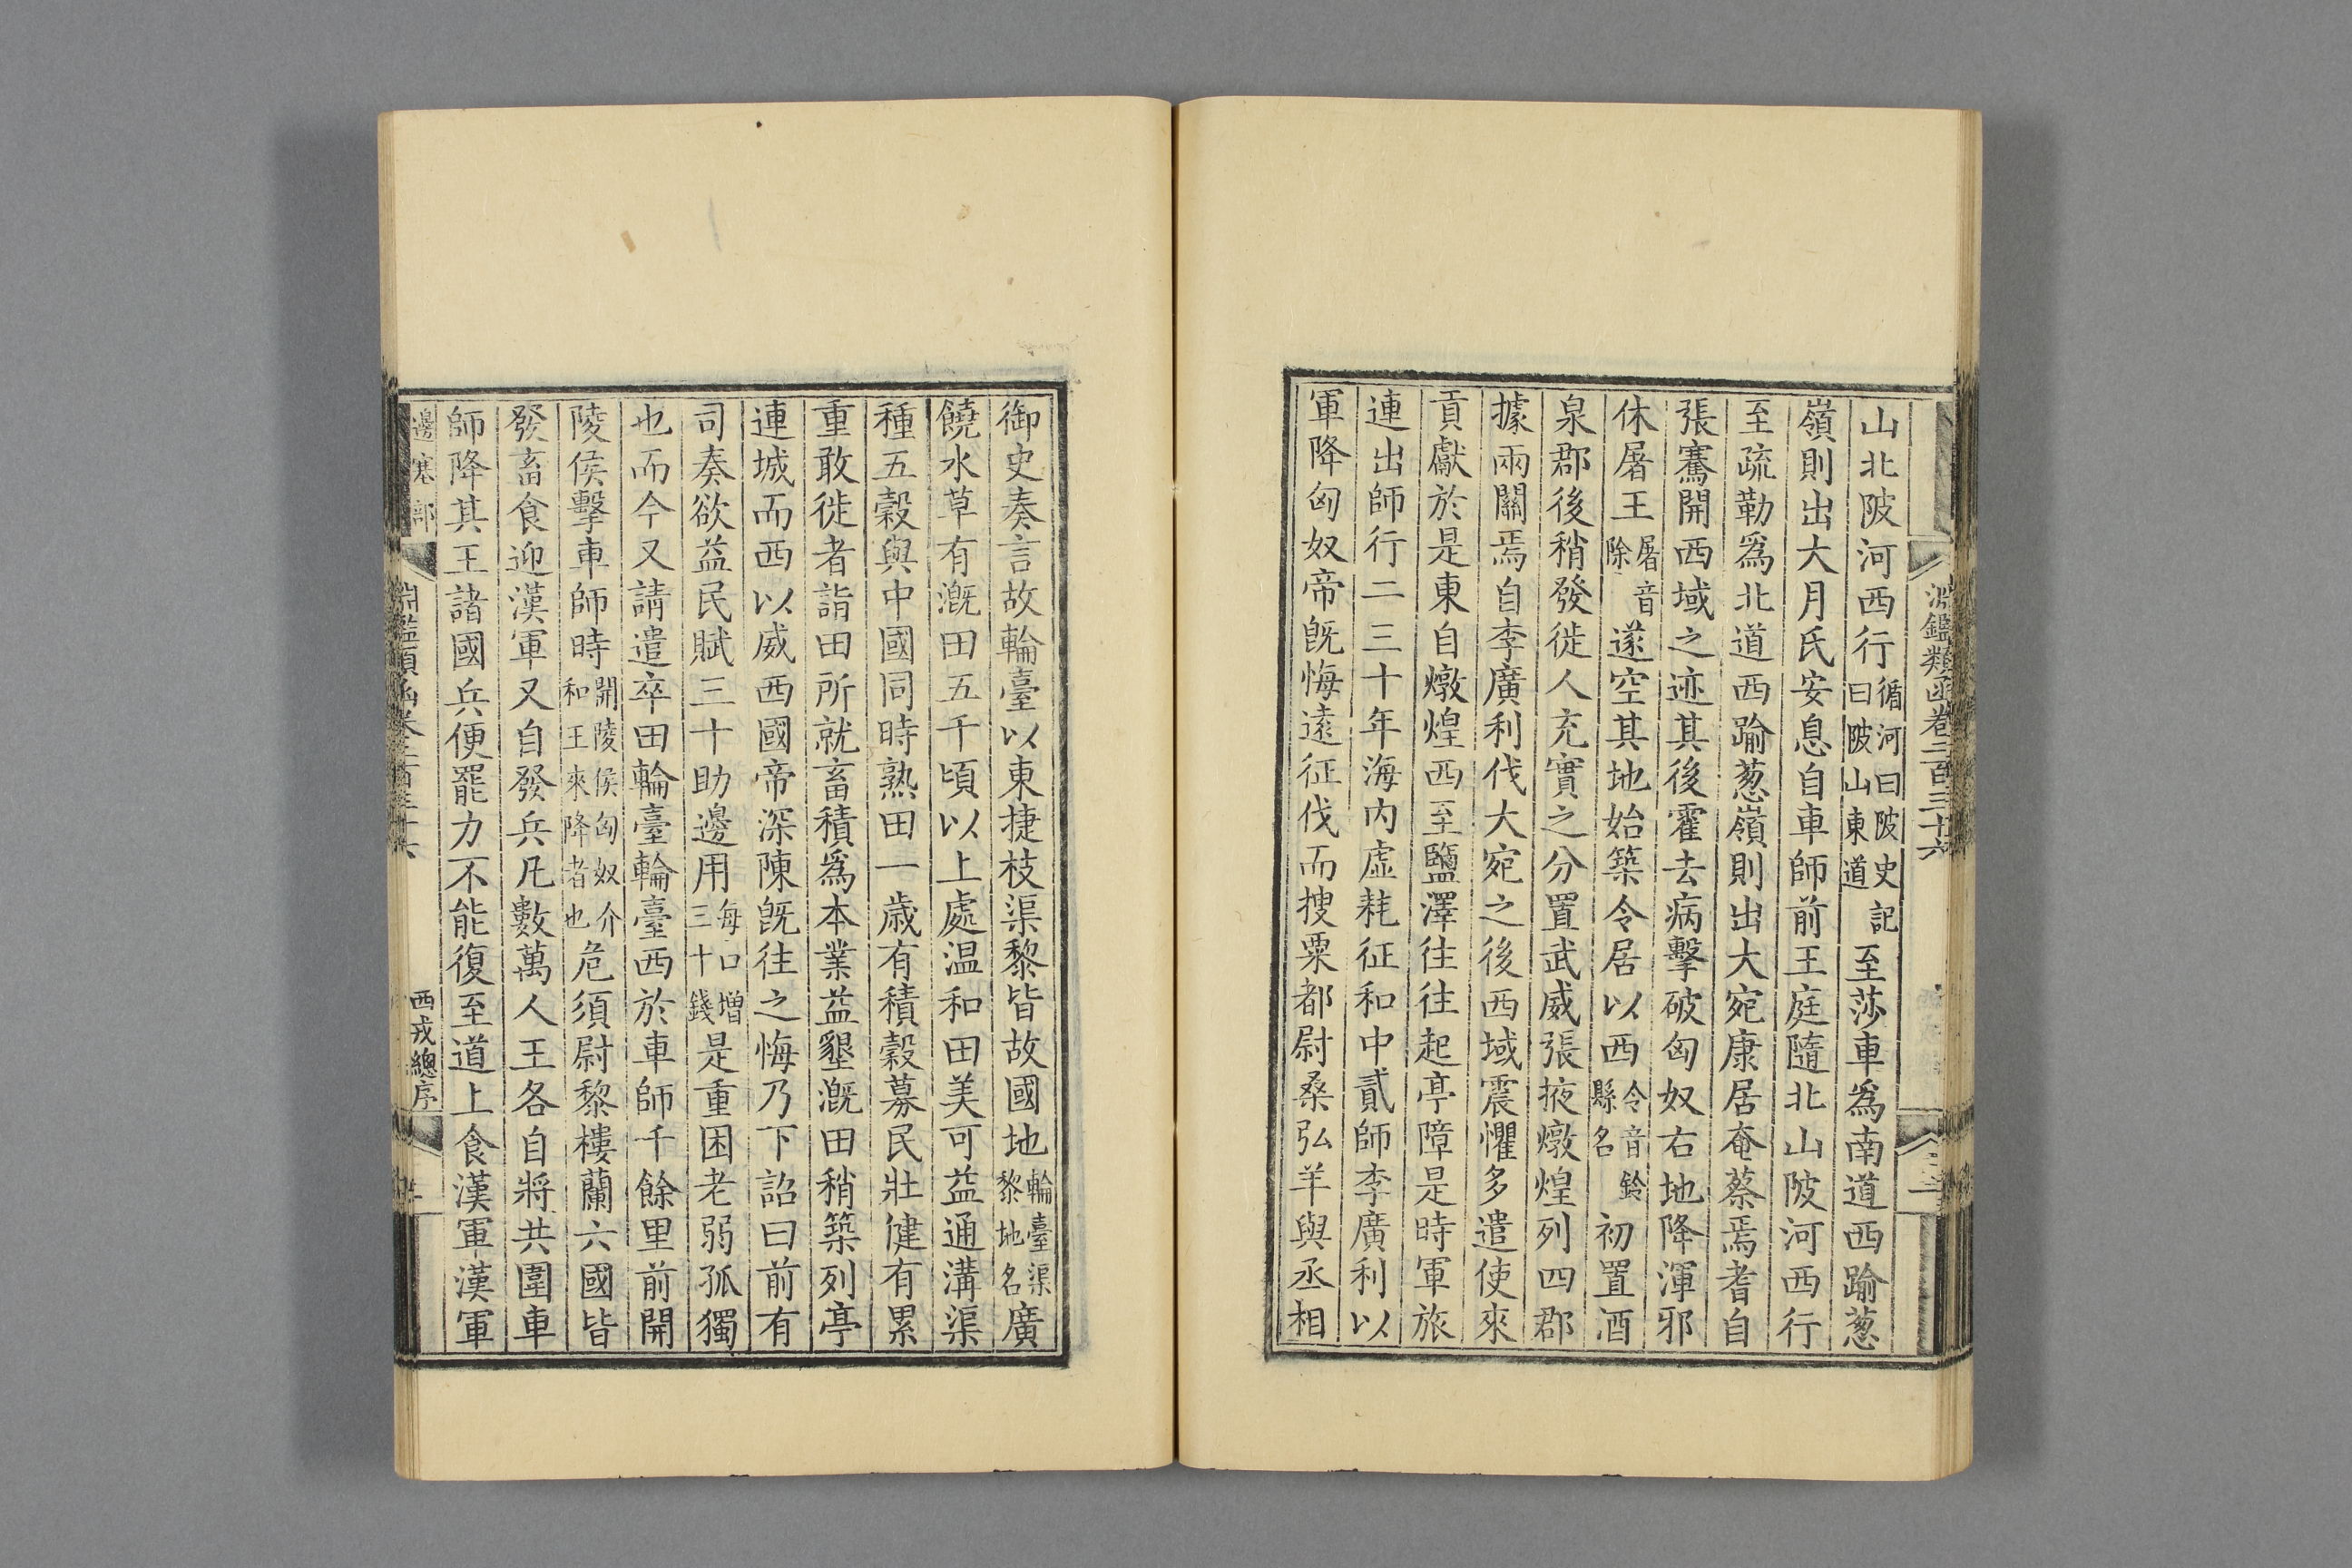 淵鑑類函卷二百三十六
山北陂河西行循河曰陂史記曰陂山東道至莎車爲南道西踰葱
嶺則出大月氏安息自車師前王庭隨北山陂河西行
至疏勒爲北道西踰葱嶺則出大宛康居奄蔡焉耆自
張騫開西域之迹其後霍去病擊破匈奴右地降渾邪
休屠王屠音除遂空其地始築令居以西令音鈴縣名初置酒
泉郡後稍發徙人充實之分置武威張掖燉煌列四郡
據兩關焉自李廣利伐大宛之後西域震懼多遣使來
貢獻於是東自燉煌西至鹽澤往往起亭障是時軍旅
連出師行二三十年海内虚耗征和中貳師李廣利以
軍降匈奴帝旣悔遠征伐而搜粟都尉桑弘羊與丞相
御史奏言故輪臺以東捷枝渠黎皆故國地輪臺渠黎地名廣
饒水草有漑田五千頃以上處温和田美可益通溝渠
種五穀與中國同時熟田一歲有積穀募民壯健有累
重敢徙者詣田所就畜積爲本業益墾漑田稍築列亭
連城而西以威西國帝深陳旣往之悔乃下詔曰前有
司奏欲益民賦三十助邊用每口增三十錢是重困老弱孤獨
也而今又請遣卒田輪臺輪臺西於車師千餘里前開
陵侯擊車師時開陵侯匈奴介和王來降者也危須尉黎樓蘭六國皆
發畜食迎漢軍又自發兵凡數萬人王各自將共圍車
師降其王諸國兵便罷力不能復至道上食漢軍漢軍
邊塞部
西戎總序